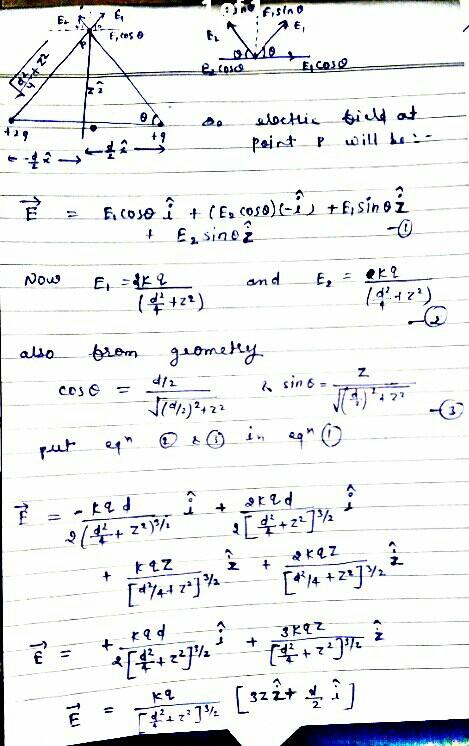 E₂ E₁
E₁cosθ
P
√(d²/4 + z²)
z ẑ
θ
+2q +q
← -d/2 x̂ → ← d/2 x̂ →
E₁sinθ
E₂ E₁
θ θ
E₂cosθ E₁cosθ
so electric field at
point P will be :-
E⃗ = E₁cosθ î + (E₂cosθ)(-î) + E₁sinθ ẑ
+ E₂sinθ ẑ —①
Now E₁ = 2kq/(d²/4 + z²) and E₂ = kq/(d²/4 + z²)
—②
also from geometry
cosθ = (d/2)/√((d/2)²+z²) & sinθ = z/√((d/2)²+z²)
—③
put eqⁿ ② & ③ in eqⁿ ①
E⃗ = -kqd/2(d²/4 + z²)^3/2 î + 2kqd/2[d²/4 + z²]^3/2 î
+ kqz/[d²/4 + z²]^3/2 ẑ + 2kqz/[d²/4 + z²]^3/2 ẑ
E⃗ = + kqd/2[d²/4 + z²]^3/2 î + 3kqz/[d²/4 + z²]^3/2 ẑ
E⃗ = kq/[d²/4 + z²]^3/2 [3z ẑ + d/2 î]